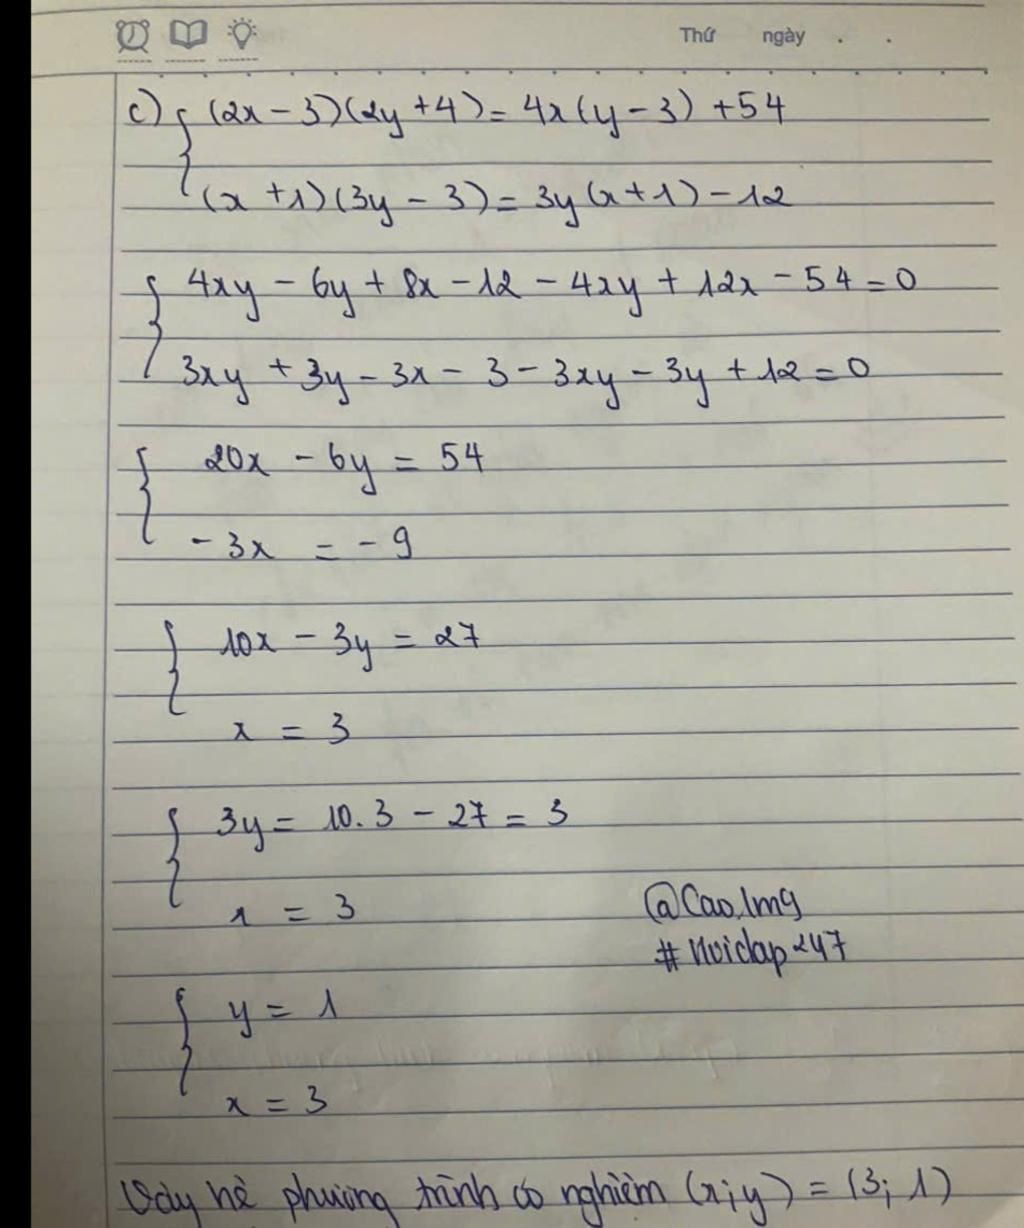 Thứ ngày . .
c) { (2x - 3)(2y + 4) = 4x(y - 3) + 54
(x + 1)(3y - 3) = 3y(x + 1) - 12
{ 4xy - 6y + 8x - 12 - 4xy + 12x - 54 = 0
3xy + 3y - 3x - 3 - 3xy - 3y + 12 = 0
{ 20x - 6y = 54
- 3x = - 9
{ 10x - 3y = 27
x = 3
{ 3y = 10.3 - 27 = 3
x = 3
@Cao,lmg
#Hoidap247
{ y = 1
x = 3
Vậy hệ phương trình có nghiệm (x;y) = (3; 1)